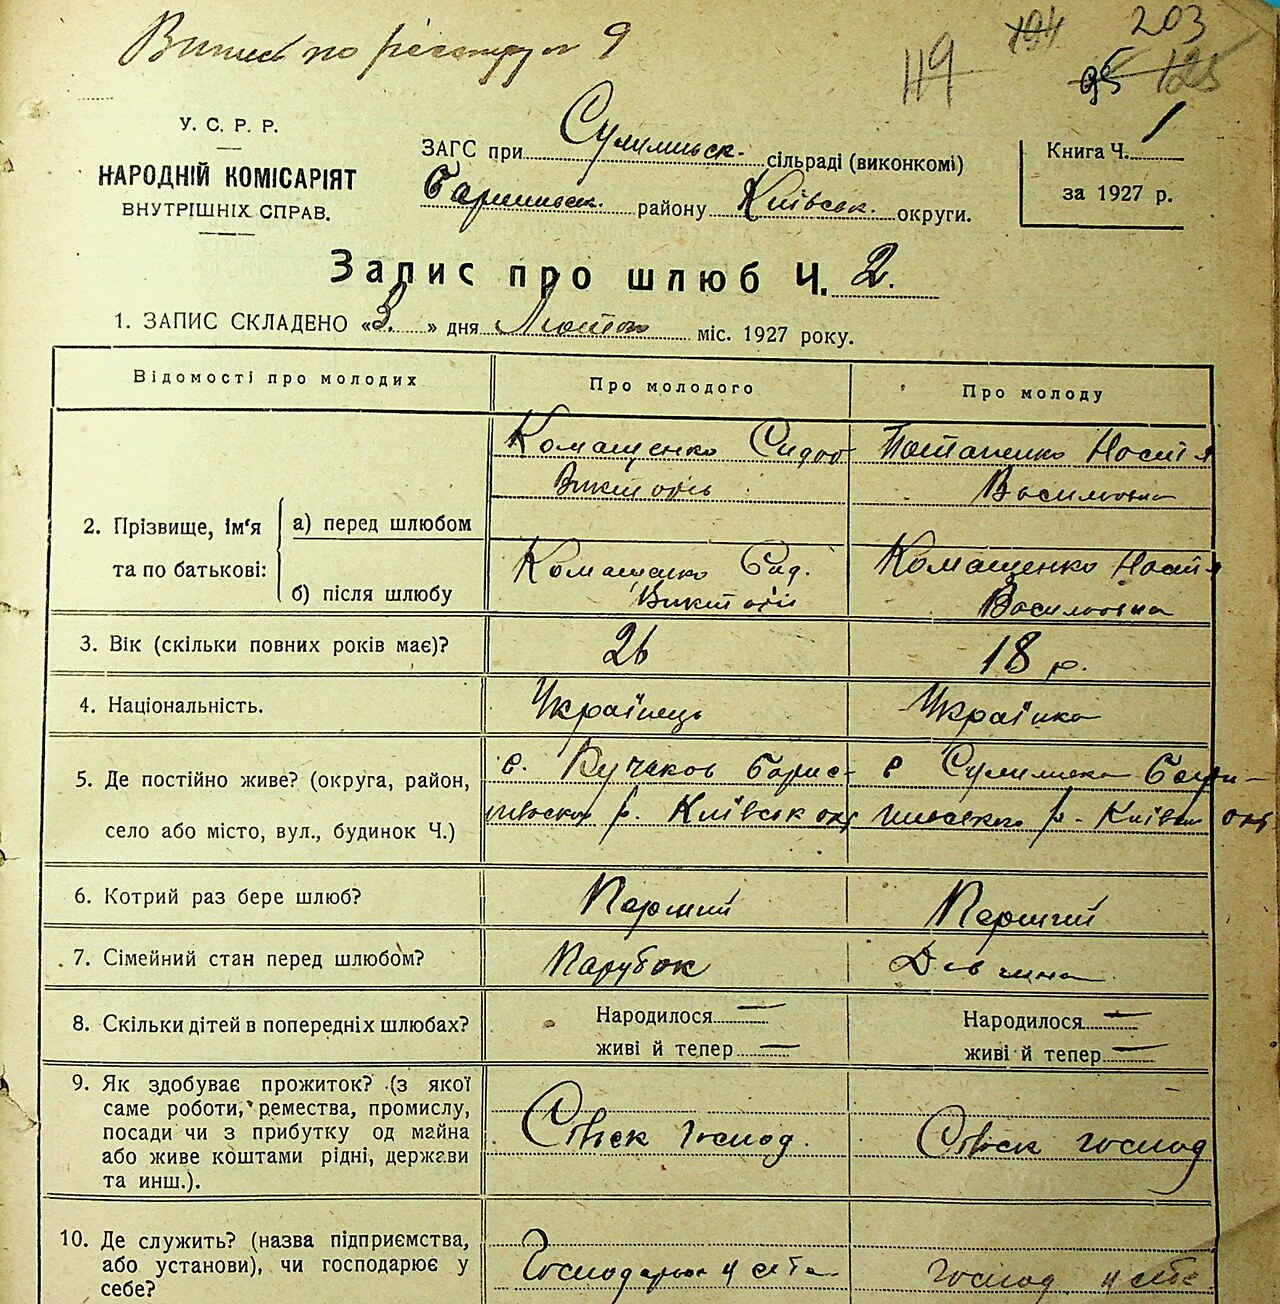 203
194
119
95 125
У. С. Р. Р.
НАРОДНІЙ КОМІСАРІЯТ
ВНУТРІШНІХ СПРАВ.
ЗАГС при Сулимовськ. сільраді (виконкомі)
Баришівськ. району Київськ. округи.
Книга Ч. 1
за 1927 р.
Запис про шлюб Ч. 2.
1. ЗАПИС СКЛАДЕНО «3.» дня Лютого міс. 1927 року.
Відомості про молодих
Про молодого
Про молоду
2. Прізвище, ім'я та по батькові:
а) перед шлюбом
Комащенко Сидор
Потапенко Настя
Васильовна
б) після шлюбу
Комащенко Сид.
Комащенко Настя
Васильовна
3. Вік (скільки повних років має)?
26
18 р.
4. Національність.
Українець
Українка
5. Де постійно живе? (округа, район,
село або місто, вул., будинок Ч.)
с. Кучаков Барис-
р. Київськ окр
с
р. Київськ окр
6. Котрий раз бере шлюб?
Перший
Перший
7. Сімейний стан перед шлюбом?
Парубок
Дівчина
8. Скільки дітей в попередніх шлюбах?
Народилося —
живі й тепер —
Народилося —
живі й тепер —
9. Як здобуває прожиток? (з якої
саме роботи, ремества, промислу,
посади чи з прибутку од майна
або живе коштами рідні, держави
та инш.).
Сільск господ.
Сільск господ
10. Де служить? (назва підприємства,
або установи), чи господарює у
себе?
Господарює у себе
господ у себе